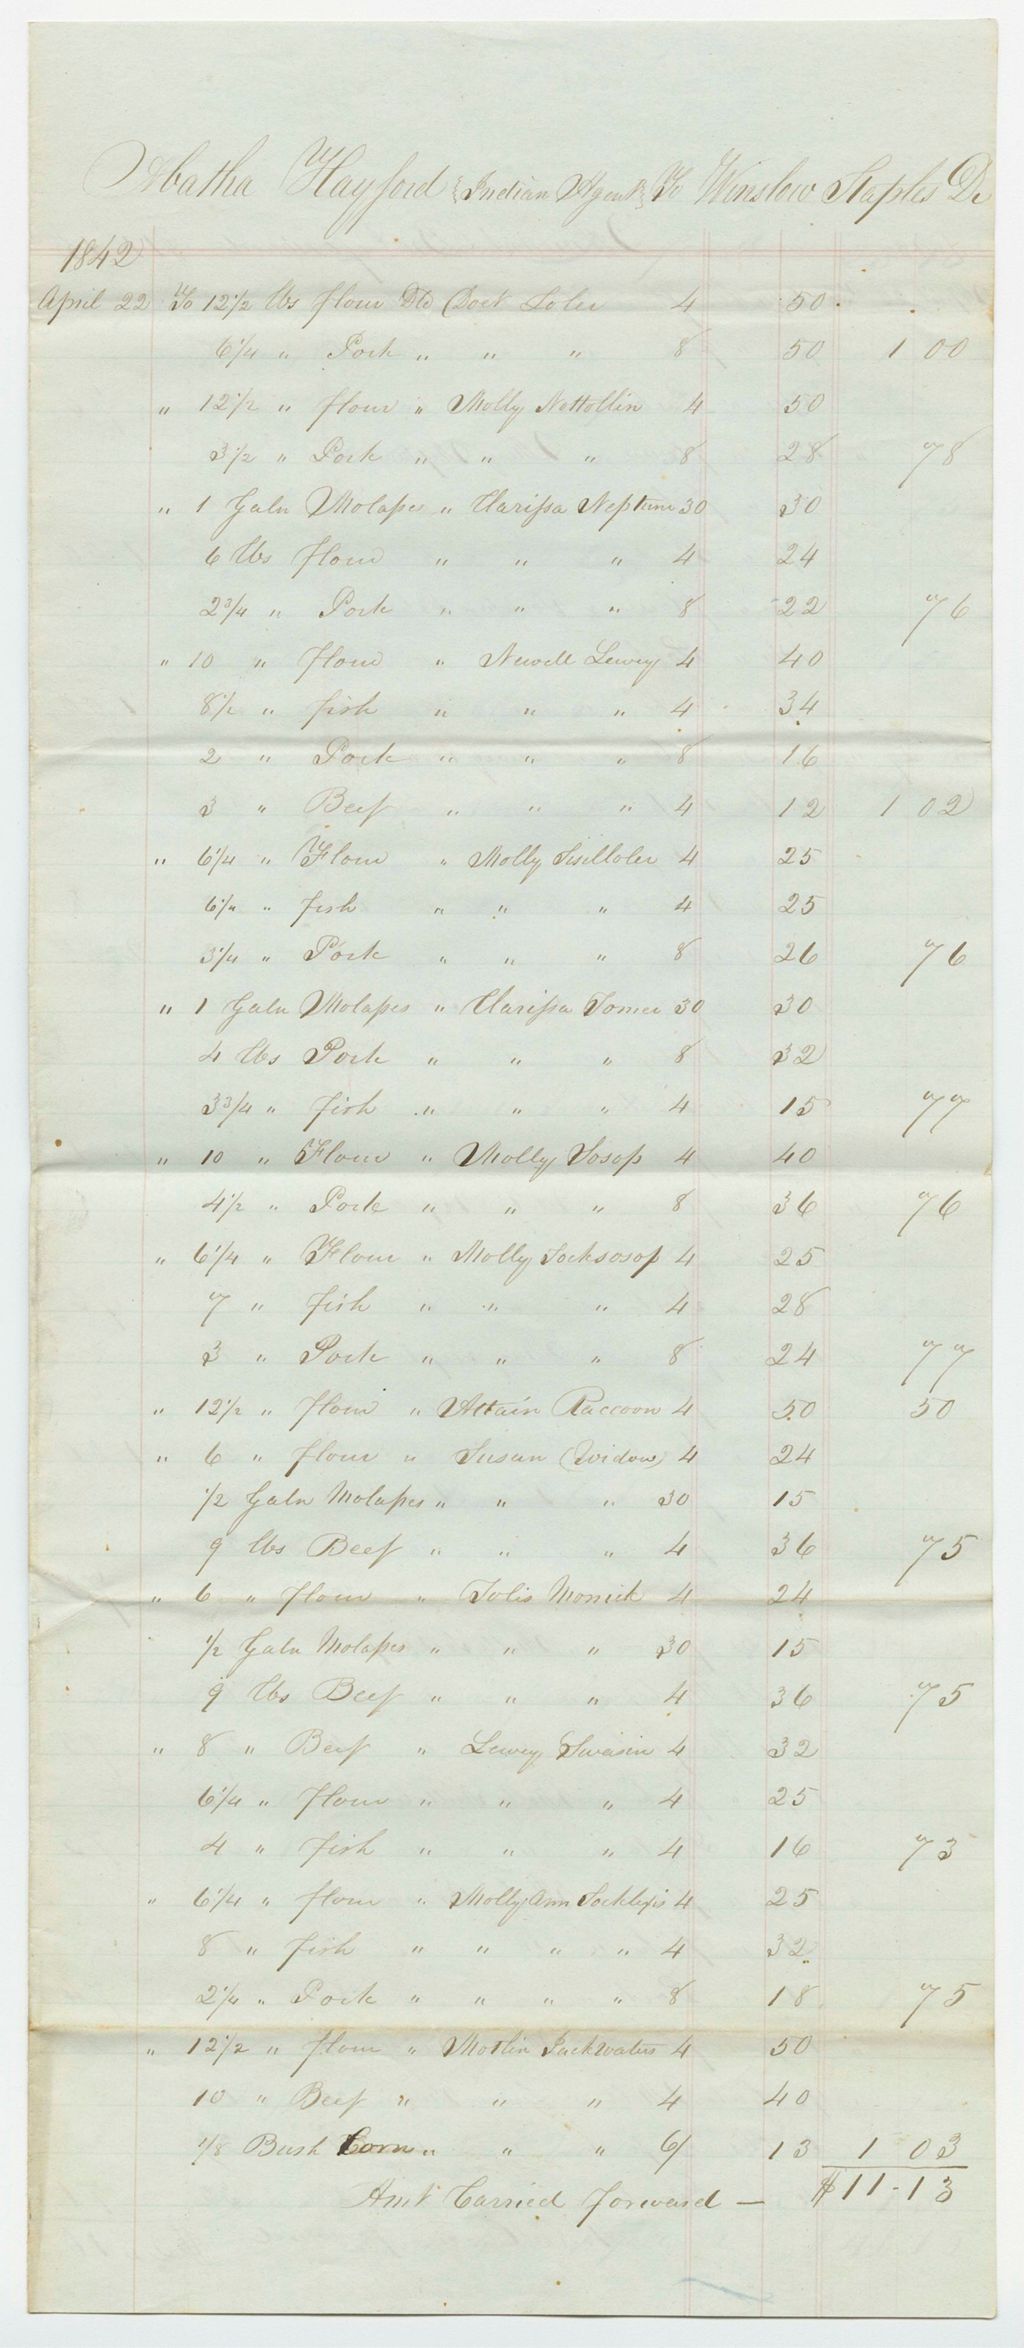 Abatha Hayford {Indian Agent} To Winslow Staples Dr
1842
April 22 To 12 1/2 lbs flour Dld Doct Loler 4 50
6 1/4 " Pork " " " 8 50 1 00
" 12 1/2 " flour " Molly Nettollin 4 50
3 1/2 " Pork " " " 8 28 78
" 1 Galn Molasses " Clarissa Neptune 30 30
6 lbs flour " " " 4 24
2 3/4 " Pork " " " 8 22 76
" 10 " flour " Newell Lewey 4 40
8 1/2 " fish " " " 4 34
2 " Pork " " " 8 16
3 " Beef " " " 4 12 1 02
" 6 1/4 " Flour " Molly Sisilloler 4 25
6 1/4 " fish " " " 4 25
3 1/4 " Pork " " " 8 26 76
" 1 Galn Molasses " Clarissa Tomer 30 30
4 lbs Pork " " " 8 32
3 3/4 " fish " " " 4 15 77
" 10 " Flour " Molly Sosop 4 40
4 1/2 " Pork " " " 8 36 76
" 6 1/4 " Flour " Molly Socksosop 4 25
7 " fish " " " 4 28
3 " Pork " " " 8 24 77
" 12 1/2 " flour " Attain Raccoon 4 50 50
" 6 " flour " Susan (Widow) 4 24
1/2 Galn Molasses " " " 30 15
9 lbs Beef " " " 4 36 75
" 6 " flour " Tolis Monick 4 24
1/2 Galn Molasses " " " 30 15
9 lbs Beef " " " 4 36 75
" 8 " Beef " Lewey Swasin 4 32
6 1/4 " flour " " " 4 25
4 " fish " " " 4 16 73
" 6 1/4 " flour " Molly Ann Socklexis 4 25
8 " fish " " " " 4 32
2 1/4 " Pork " " " " 8 18 75
" 12 1/2 " flour " Motlin Jackwaters 4 50
10 " Beef " " " 4 40
1/8 Bush Corn " " " 6/ 13 1 03
Amt Carried forward — $11.13